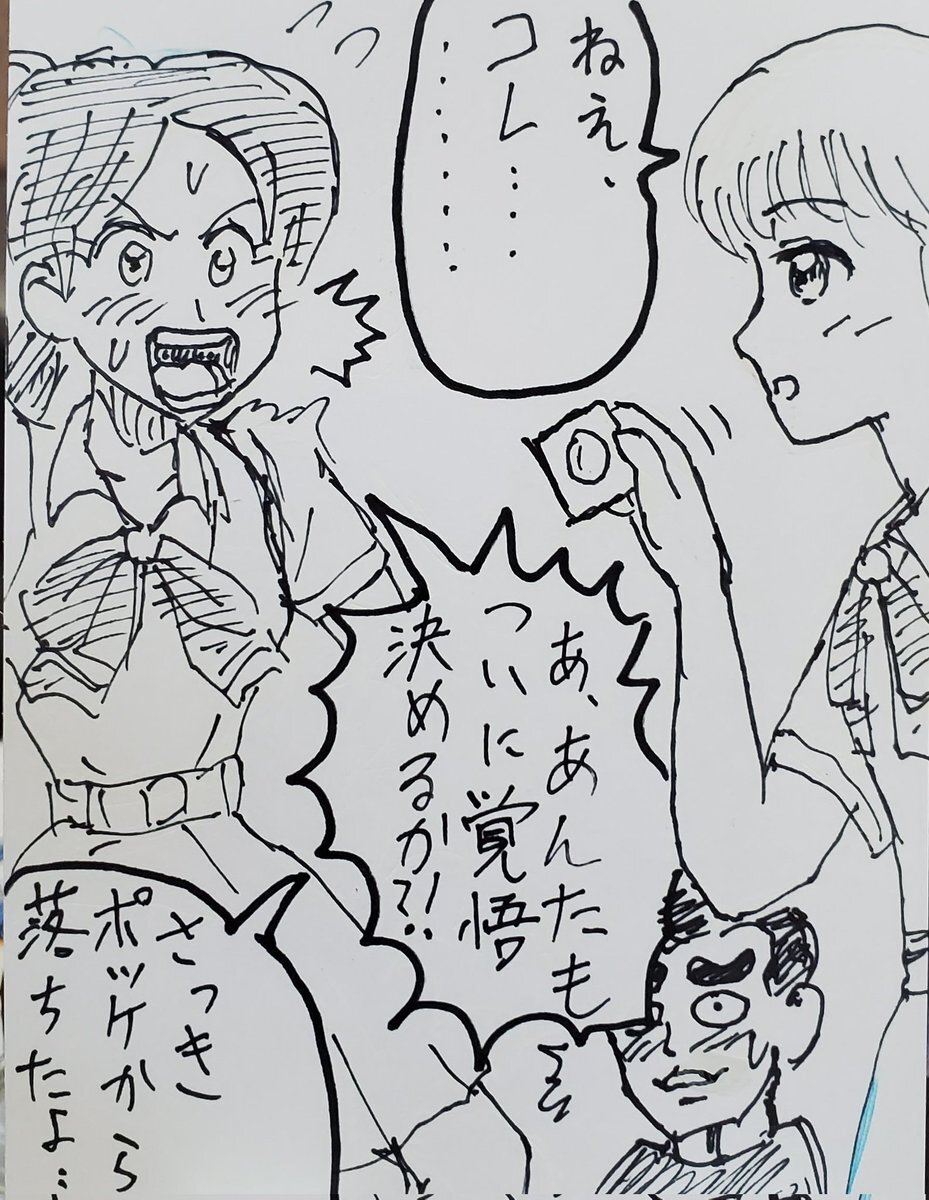 ねえ、
コレ……
………
あ、あんたも
ついに覚悟
決めるか?!
さっき
ポッケから
落ちたよ…